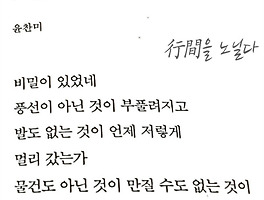 윤찬미
行間을 노닐다
비밀이 있었네
풍선이 아닌 것이 부풀려지고
발도 없는 것이 언제 저렇게
멀리 갔는가
물건도 아닌 것이 만질 수도 없는 것이